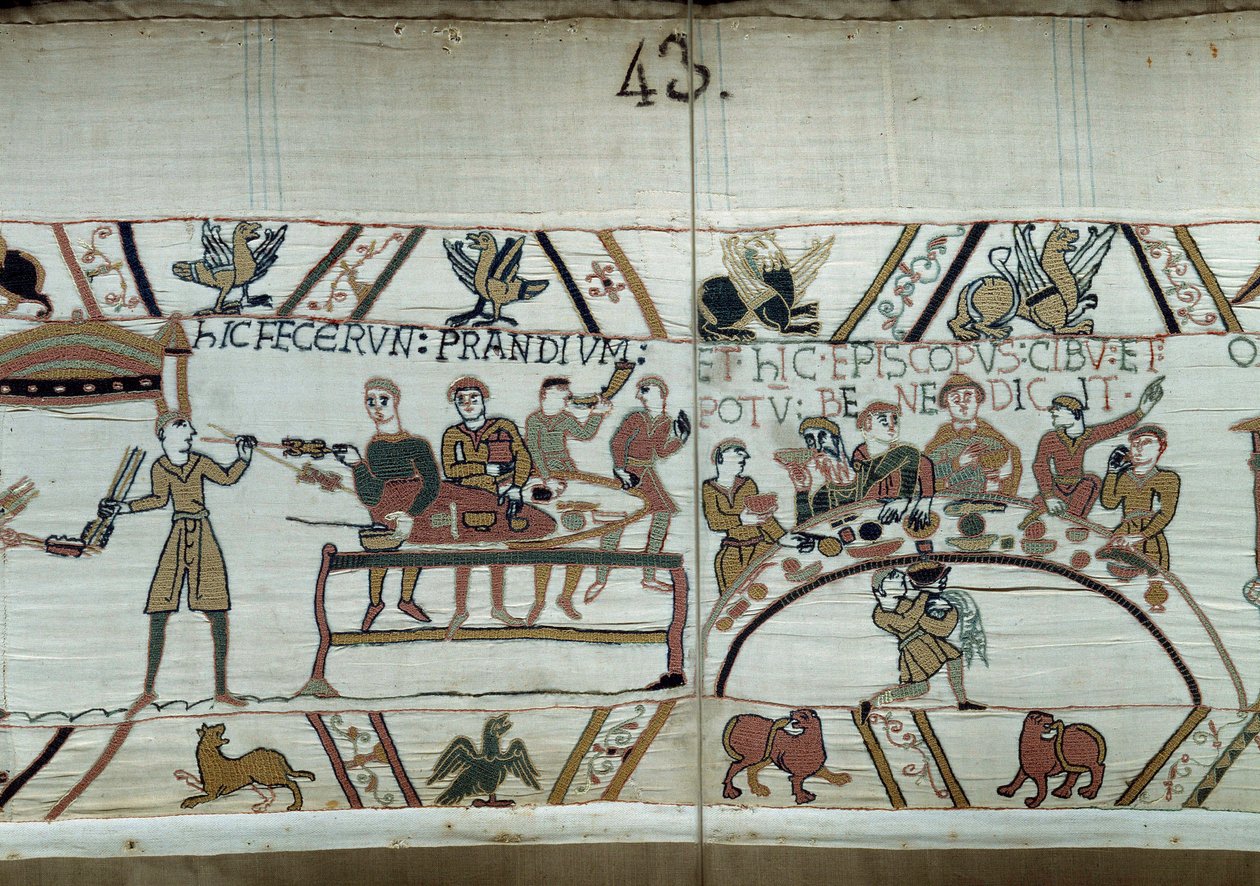 43.
HIC FECERVN: PRANDIVM:
ET· HIC· EPISCOPVS: CIBV: ET·
POTV: BENEDICIT·